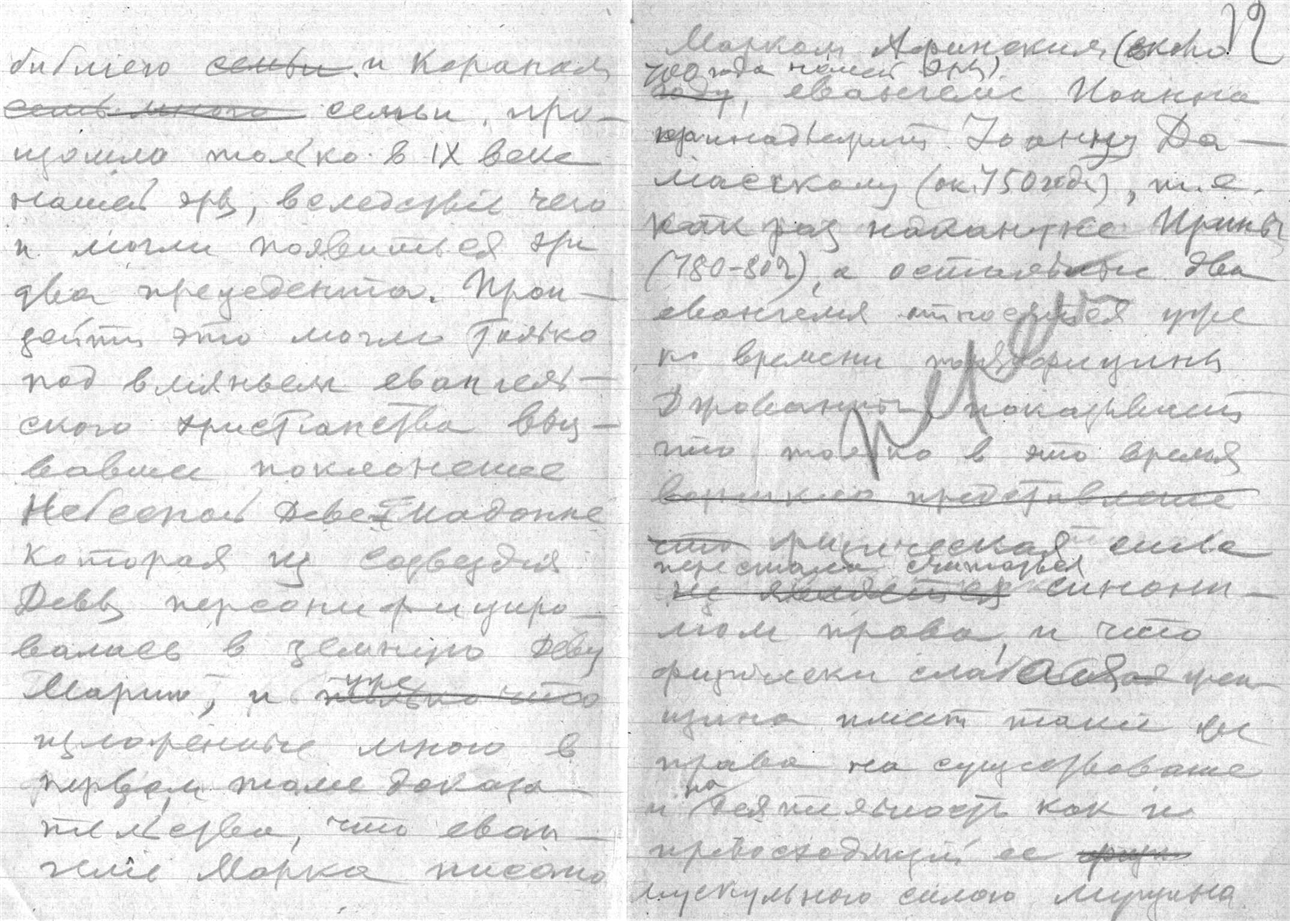 библиею семьи и Кораном
семь много семьи, про-
изошло только в IX веке
нашей эры, вследствие чего
и могли появиться эти
два прецедента. Прои-
зойти это могло только
под влияньем евангель-
ского христианства выз-
вавшее поклонение
Небесной Деве Мадонне
которая из созвездия
Девы персонифициро-
валась в земную Деву
Марию, и уже только что
изложенные мною в
первом томе доказа-
тельства, что еван-
гелие Марка писано
12
Марком Афинским (около
700 года нашей эры)
году, евангелие Иоанна
принадлежит Иоанну Да-
маскому (ок. 750 года), т.е.
как раз накануне Ирины
(780-802), а остальные два
евангелия относятся уже
ко времени
показывает
что только в это время
возникло представление
что физическая сила
перестала считаться
не является синони-
мом права, и что
физически слабая жен-
щина имеет такие же
права на существование
и на деятельность как и
превосходящий ее физи
мускульного силою мужчина